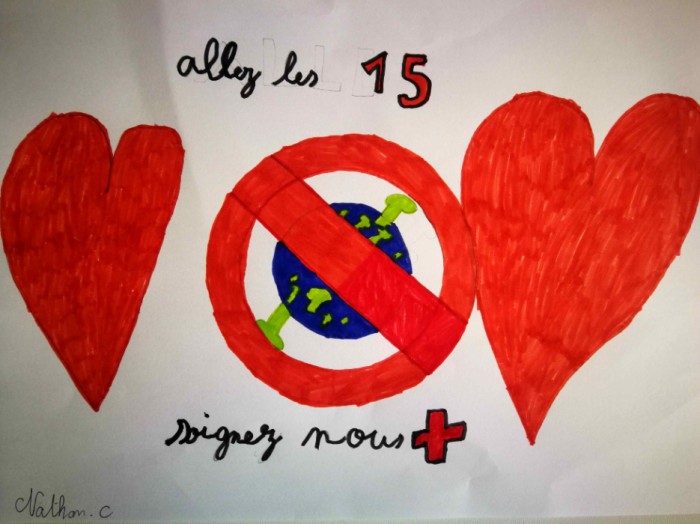 allez les 15
soignez nous
Nathan.C